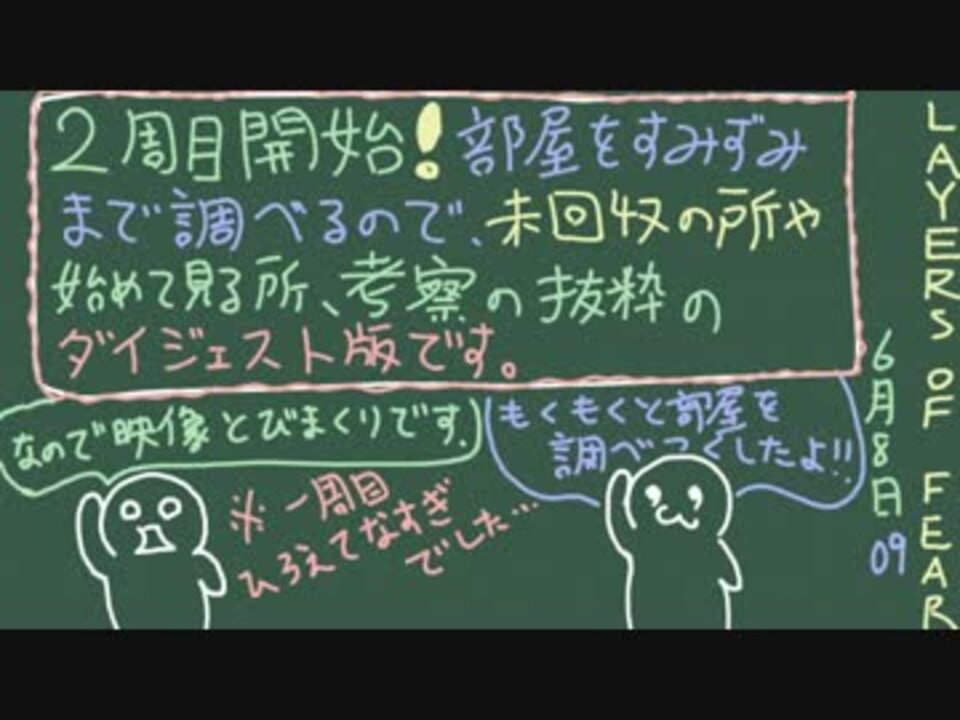 2周目開始!部屋をすみずみ
まで調べるので、未回収の所や
始めて見る所、考察の抜粋の
ダイジェスト版です。
なので映像とびまくりです。
もくもくと部屋を
調べつくしたよ!!
※一周目
ひろえてなすぎ
でした…
LAYERS OF FEAR
6月8日
09